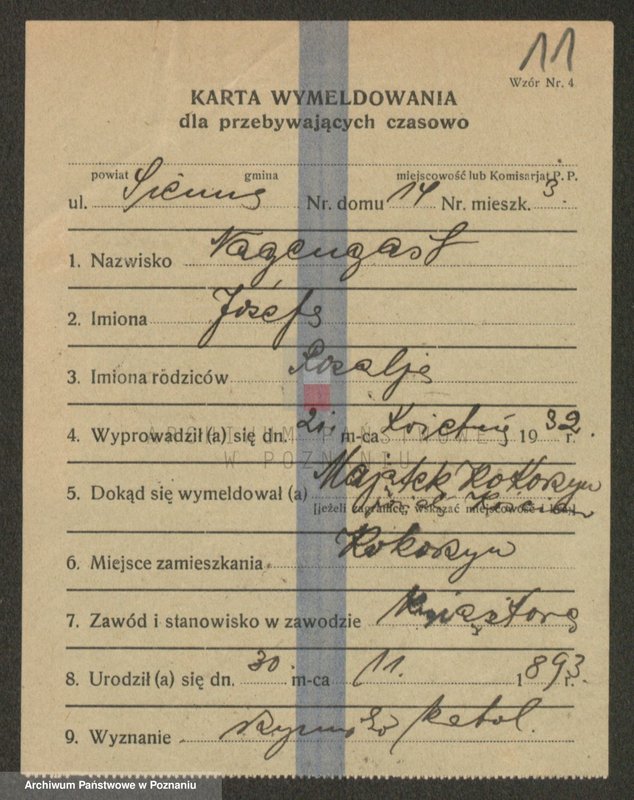 11
Wzór Nr. 4
KARTA WYMELDOWANIA
dla przebywających czasowo
powiat gmina miejscowość lub Komisarjat P. P.
ul. Nr. domu 14 Nr. mieszk. 3
1. Nazwisko Nagengast
2. Imiona Józefa
3. Imiona rodziców Rozalja
ARCHIWUM PAŃSTWOWE
W POZNANIU
4. Wyprowadził (a) się dn. m-ca 1932 r.
5. Dokąd się wymeldował (a) Majątek Kokorzyn
[jeżeli zagranicę, wskazać miejscowość i kraj]
6. Miejsce zamieszkania Kokorzyn
7. Zawód i stanowisko w zawodzie
8. Urodził (a) się dn. 30 m-ca 11. 1893 r.
9. Wyznanie katol.
Archiwum Państwowe w Poznaniu